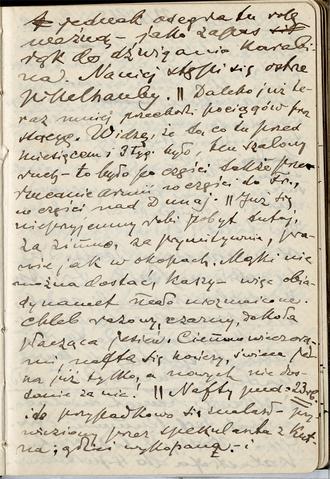 jednak odegra tu rolę
ważną – jako zapas
rąk do dźwigania karabi
na. Na niej stępi się ostrze
Pikelhauby. || Daleko już te
raz mniej przechodzi pociągów przez
stację. Widzę, że to, co tu przed
miesiącem i 3 tyg. było, ten szalony
ruch – to było po części także prze
rzucanie armii w części do Fr.,
w części nad Dunaj. || Już się
nieprzyjemny robi pobyt tutaj,
za zimno, za prymitywnie, pra
wie jak w okopach. Mąki nie
można dostać, kaszy – więc obia
dy nawet mało urozmaicone.
Chleb razowy, czarny, dokoła
płacząca jesień. Ciemno wieczora
mi, nafta się kończy, świeca jed
na już tylko, a nowych nie dos
tanie za nic! || Nafty pud – 23 rb.
i to przypadkowo się znalazł – przy
wieziony przez spekulanta z Kut
na; gdzieś wykopaną. –